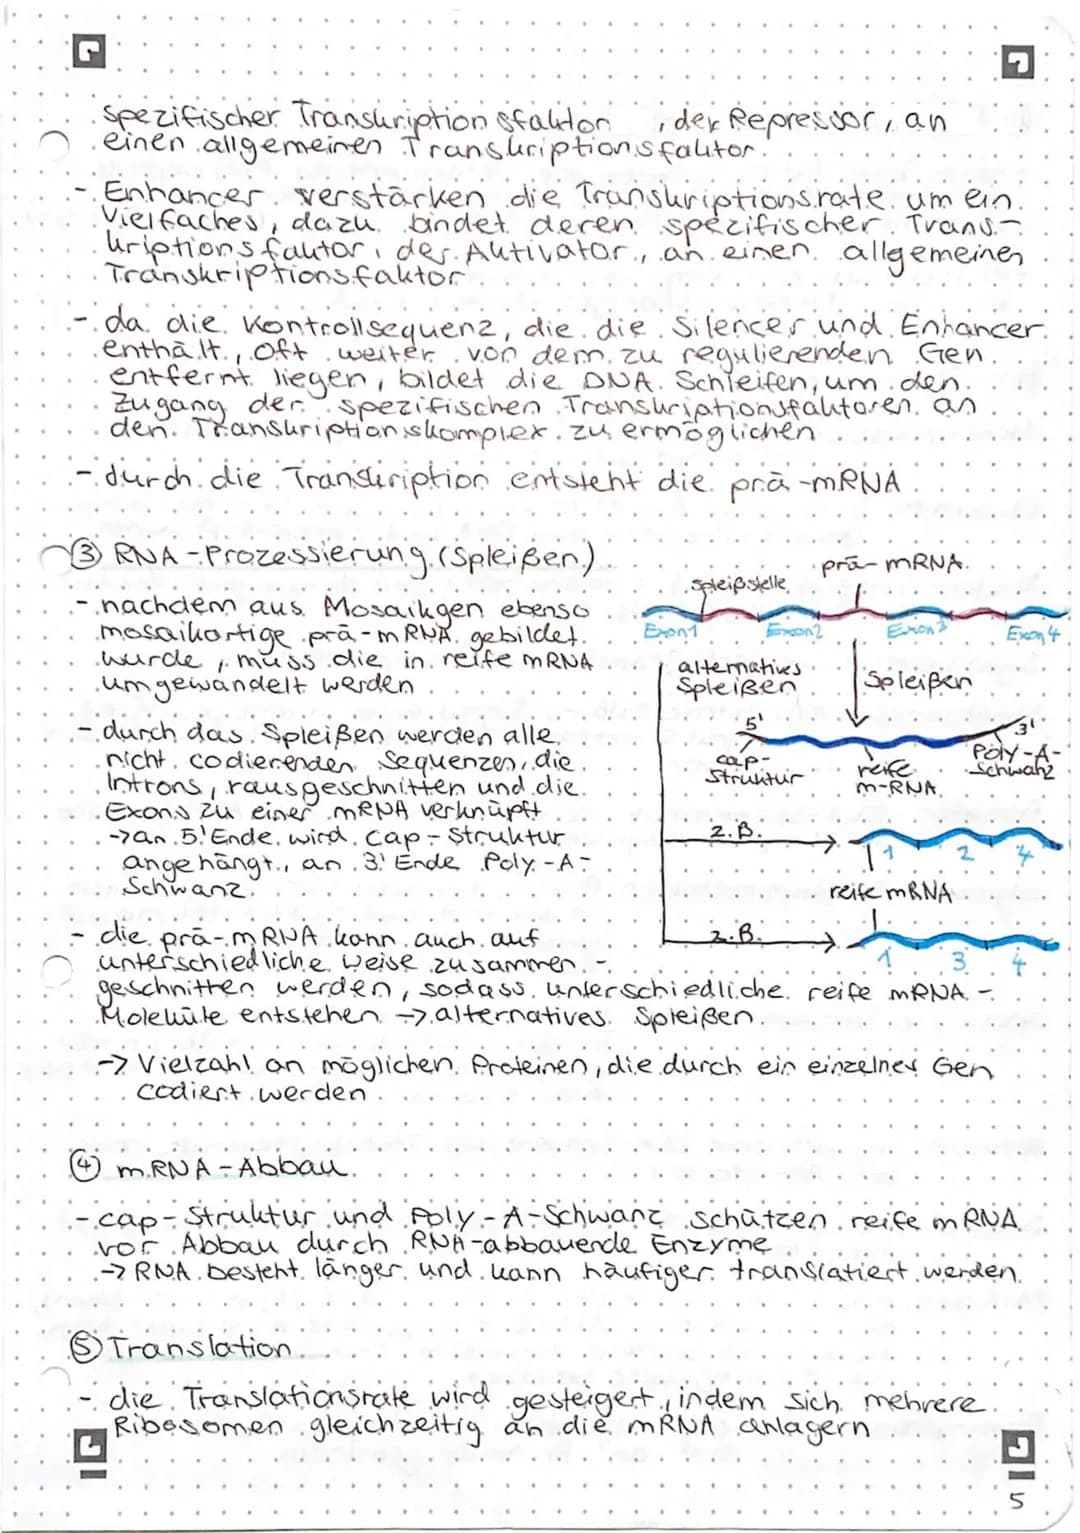 spezifischer Transkriptionsfaktor, der Repressor, an
einen allgemeinen Transkriptionsfaktor.
- Enhancer verstärken die Transkriptionsrate um ein
Vielfaches, dazu bindet deren spezifischer Trans-
kriptionsfaktor, der Aktivator, an einen allgemeinen
Transkriptionsfaktor
- da die Kontrollsequenz, die die Silencer und Enhancer
enthält, oft weiter von dem zu regulierenden Gen
entfernt liegen, bildet die DNA Schleifen, um den
Zugang der spezifischen Transkriptionsfaktoren an
den Transkriptionskomplex zu ermöglichen
- durch die Transkription entsteht die prä-mRNA
③ RNA-Prozessierung (Spleißen)
- nachdem aus Mosaikgen ebenso
mosaikartige prä-mRNA gebildet
wurde, muss die in reife mRNA
umgewandelt werden
- durch das Spleißen werden alle
nicht codierenden Sequenzen, die
Introns, rausgeschnitten und die
Exons zu einer mRNA verknüpft
→ an 5' Ende wird cap-Struktur
angehängt, an 3' Ende Poly-A-
Schwanz
prä-mRNA
Spleißstelle
Exon1 Exon2 Exon3 Exon 4
alternatives
Spleißen
Spleißen
5' 3'
cap-
Struktur
reife
m-RNA
Poly-A-
Schwanz
z.B.
1 2 4
reife mRNA
z.B.
1 3 4
- die prä-mRNA kann auch auf
unterschiedliche Weise zusammen-
geschnitten werden, sodass unterschiedliche reife mRNA-
Moleküle entstehen → alternatives Spleißen
→ Vielzahl an möglichen Proteinen, die durch ein einzelnes Gen
codiert werden
④ mRNA-Abbau
- cap-Struktur und Poly-A-Schwanz schützen reife mRNA
vor Abbau durch RNA-abbauende Enzyme
→ RNA besteht länger und kann häufiger translatiert werden
⑤ Translation
- die Translationsrate wird gesteigert, indem sich mehrere
Ribosomen gleichzeitig an die mRNA anlagern
5